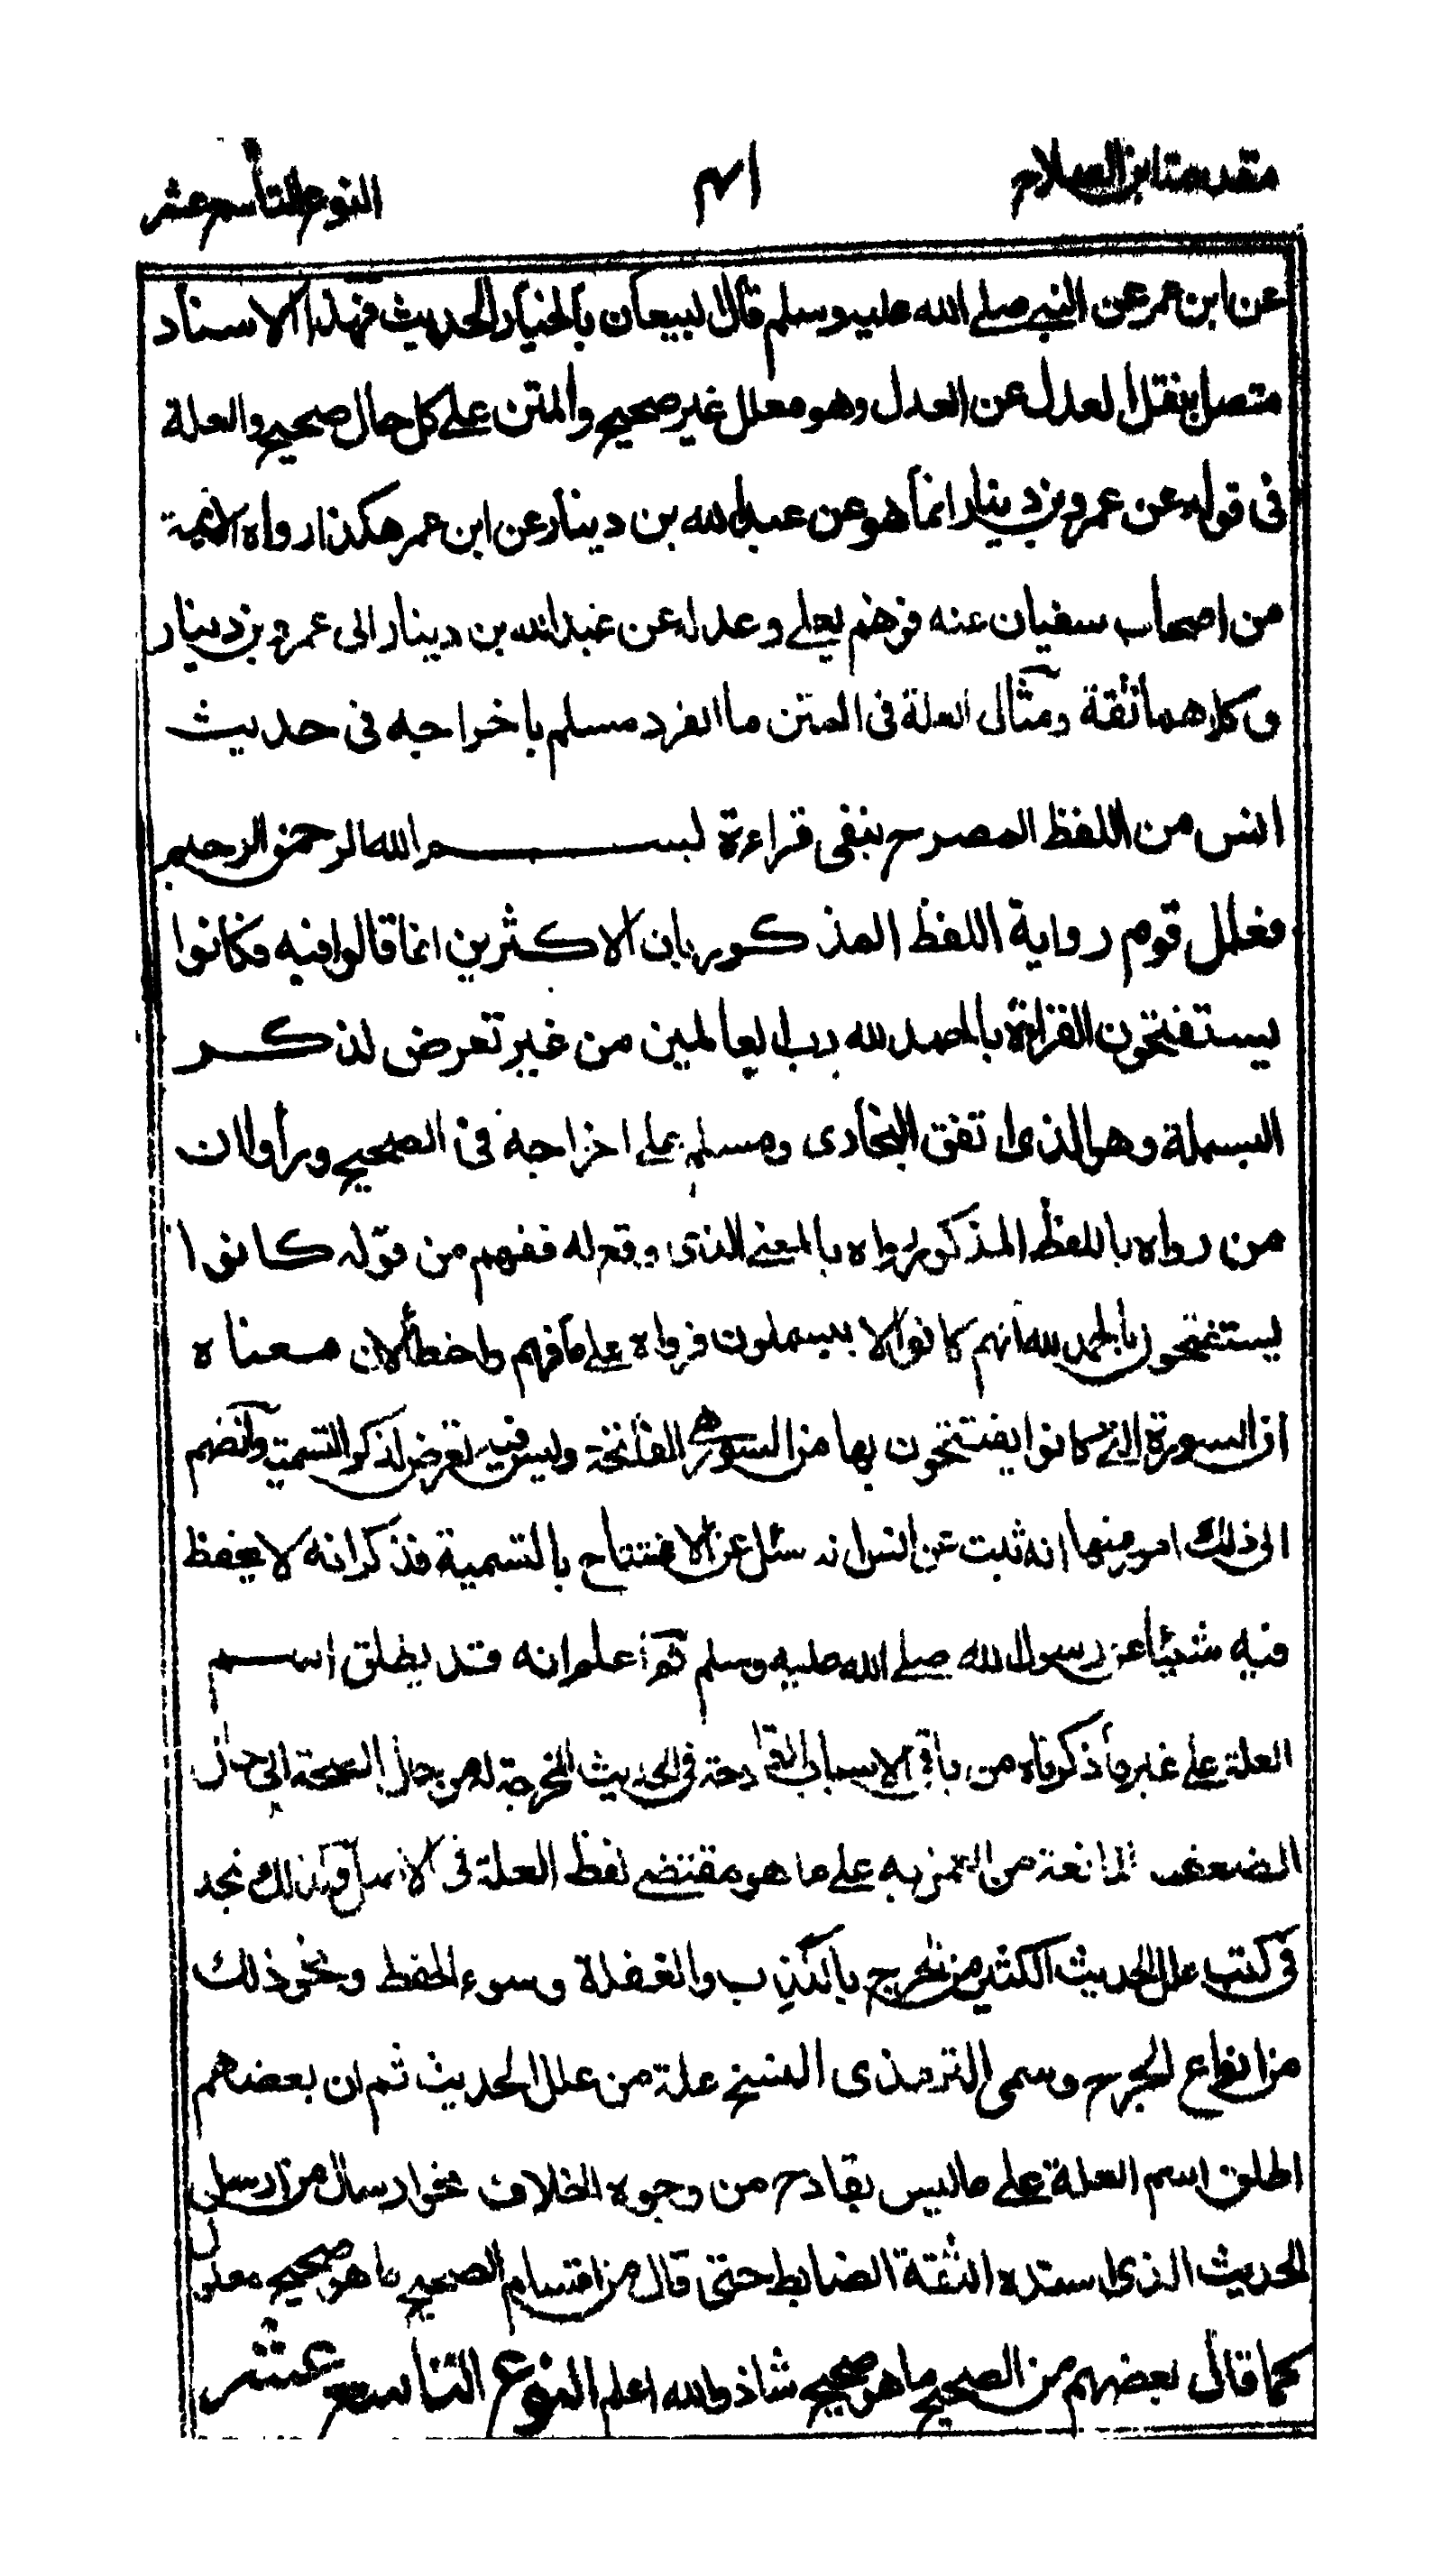 مقدمة ابن الصلاح ۴۱ النوع التاسع عشر
عن ابن عمر عن النبي صلى الله عليه وسلم قال البيعان بالخيار الحديث فهذا الاسناد
متصل بنقل العدل عن العدل وهو معلل غير صحيح والمتن على كل حال صحيح والعلة
فى قوله عن عمرو بن دينار انما هو عن عبد الله بن دينار عن ابن عمر هكذا رواه الائمة
من اصحاب سفيان عنه فوهم يعلى وعدل عن عبد الله بن دينار الى عمرو بن دينار
وكلاهما ثقة ومثال العلة فى المتن ما انفرد مسلم باخراجه فى حديث
انس من اللفظ المصرح بنفى قراءة بسم الله الرحمن الرحيم
فعلل قوم رواية اللفظ المذكور بان الاكثرين انما قالوا فيه فكانوا
يستفتحون القراءة بالحمد لله رب العالمين من غير تعرض لذكر
البسملة وهو الذى اتفق البخارى ومسلم على اخراجه فى الصحيح ورأوا ان
من رواه باللفظ المذكور رواه بالمعنى الذى وقع له ففهم من قوله كانوا
يستفتحون بالحمد لله انهم كانوا لا يبسملون فرواه على ما فهم واخطأ لان معناه
ان السورة التى كانوا يفتتحون بها من السور هى الفاتحة وليس فيه تعرض لذكر التسمية وانضم
الى ذلك امور منها انه ثبت عن انس انه سئل عن الافتتاح بالتسمية فذكر انه لا يحفظ
فيه شيئا عن رسول الله صلى الله عليه وسلم ثم اعلم انه قد يطلق اسم
العلة على غير ما ذكرناه من باقى الاسباب القادحة فى الحديث المخرجة له من حال الصحة الى حال
الضعف المانعة من العمل به على ما هو مقتضى لفظ العلة فى الاصل وكذلك نجد
فى كتب علل الحديث الكثير من الجرح بالكذب والغفلة وسوء الحفظ ونحو ذلك
من انواع الجرح وسمى الترمذى النسخ علة من علل الحديث ثم ان بعضهم
اطلق اسم العلة على ما ليس بقادح من وجوه الخلاف نحو ارسال من ارسل
الحديث الذى اسنده الثقة الضابط حتى قال من اقسام الصحيح ما هو صحيح معلول
كما قال بعضهم من الصحيح ما هو صحيح شاذ والله اعلم النوع التاسع عشر